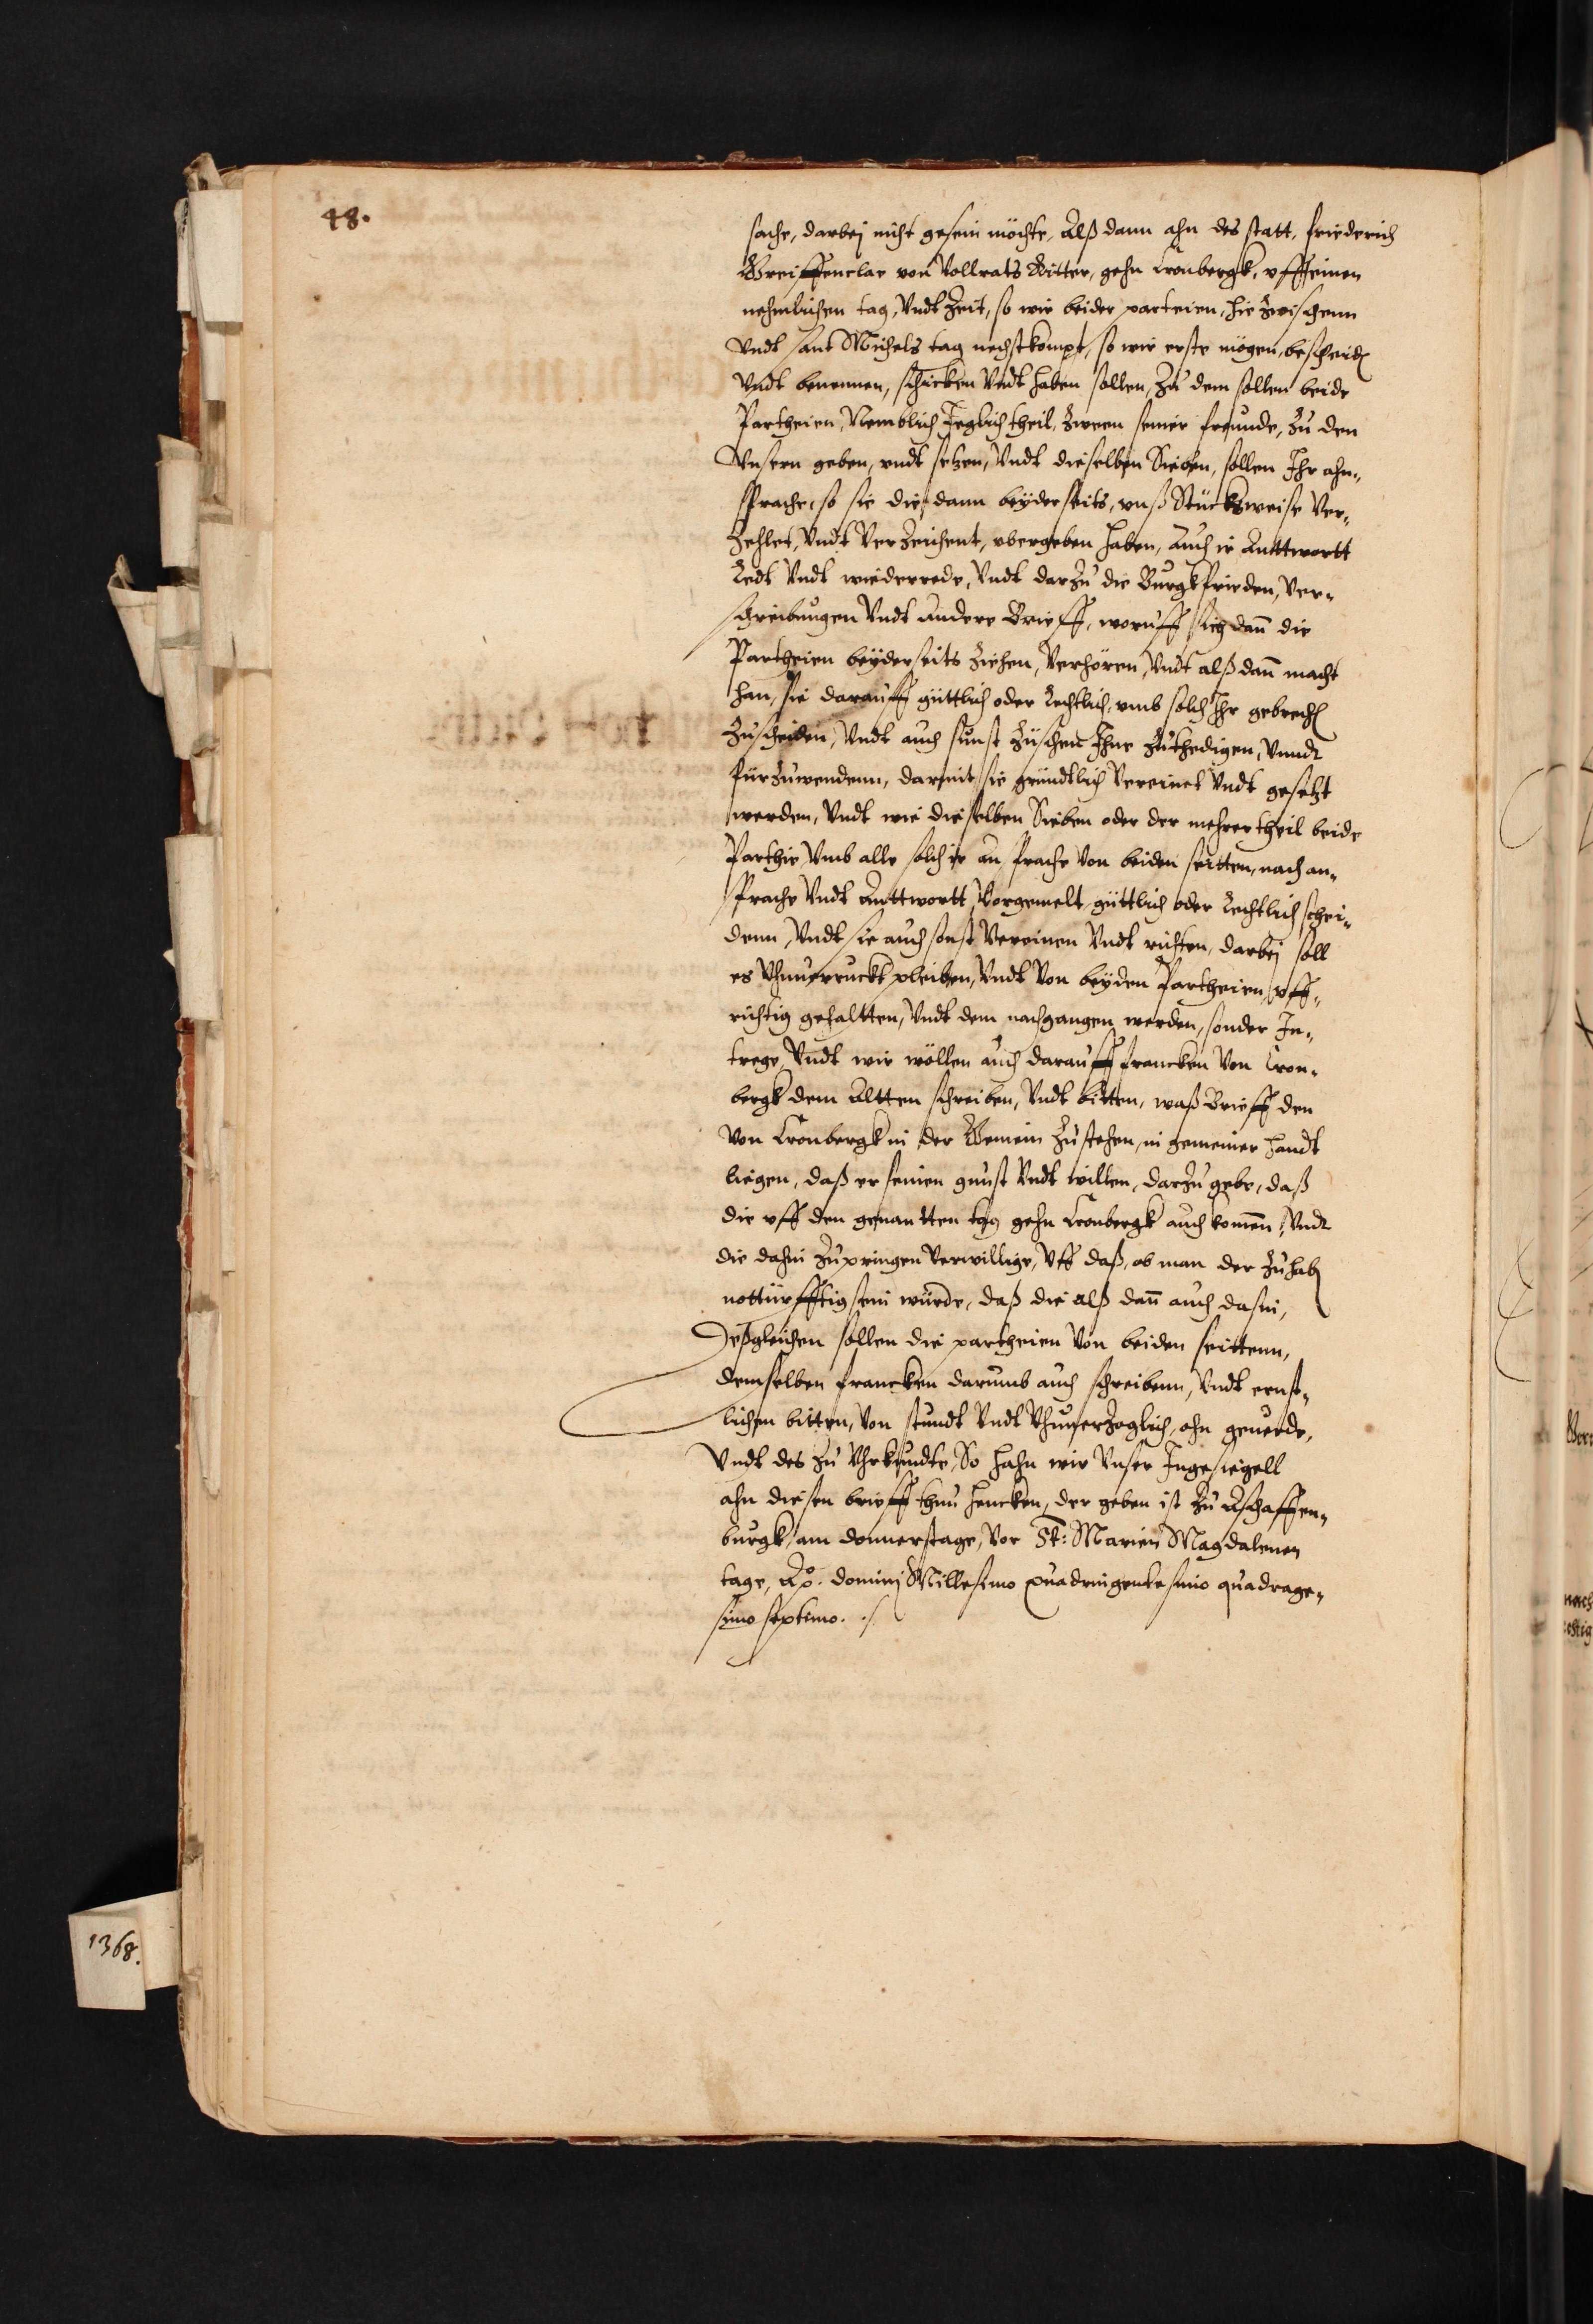 48.
sache, darbej nicht gesein möchte, Alß dann ahn des statt, friederich
Greiffenclae von Vollrats Ritter, gehn Cronbergk, vff einen
nehmlichen tag, Vndt Zeit, so wir beider parteien, hie Zwischenn
Vndt sant Michels tag nechstkompt, so wir erste mögen, bescheiden
Vndt benennen, schicken Vndt haben sollen, Zu dem sollen beide
Partheien, Nemblich Jeglich theil, Zween seiner freunde, Zu den
Vnsern geben, vndt setzen, Vndt dieselben Sieben, sollen Ihr ahn„
sprache, so sie die dann beÿderseits, vnß Stücksweise Ver„
Zehlet, Vndt VerZeichent, vbergeben haben, Auch ir Anttwortt
Redt Vndt wiederrede, Vndt darZu die Burgkfrieden, Ver„
schreibungen Vndt Andere Brieff, woruff sich dan̄ die
Partheien beÿderseits Ziehen, Verhören, Vndt alß dan̄ macht
han, sie darauff güttlich oder Rechtlich, vmb solch Ihr gebrechen
Zuscheiden, Vndt auch sunst Züschen Ihne Zuthedigen, Vnndt
fürZuwendenn, darmit sie gründtlich Vereinet Vndt gesetzt
werden, Vndt wie dieselben Sieben oder der mehrer theil beide
Parthie Vmb alle solch ir an sprache Von beiden seitten, nach an„
sprache Vndt Anttwortt, Vorgemelt, güttlich oder Rechtlich schei„
denn, Vndt sie auch sonst Vereinen Vndt richten, darbej soll
es Vhnuerruckt pleiben, Vndt Von beÿden Partheien vff„
richtig gehaltten, Vndt dem nachgangen werden, sonder In„
trege, Vndt wir wöllen auch darauff francken Von Cron„
bergk dem Altten schreiben, Vndt bitten, waß Brieff den
Von Cronbergk in der Gemein Zustehen, in gemeiner handt
liegen, daß er seinen gunst Vndt willen, darZu gebe, daß
die vff den genantten tag gehn Cronbergk auch komen̄, Vndt
die dahin Zupringen Verwillige, Vff daß, ob man der Zuhaben
nottürfftig sein würde, daß die alß dan̄ auch dasin,
Deßgleichen sollen die partheien Von beiden seittenn,
demselben francken darumb auch schreibenn, Vndt ernst„
lichen bitten, Von stundt Vndt VhnuerZoglich, ohn geuerde,
Vndt des Zu Vhrkundte, So hahn wir Vnser Ingesiegell
ahn diesen brieff thun hencken, der geben ist Zu Aschaffen„
burgk, am donnerstage, Vor St: Marien Magdalenen
tage, Ao. dominj Millesimo quadringentesimo quadrage„
simo septimo. ./.
1368.